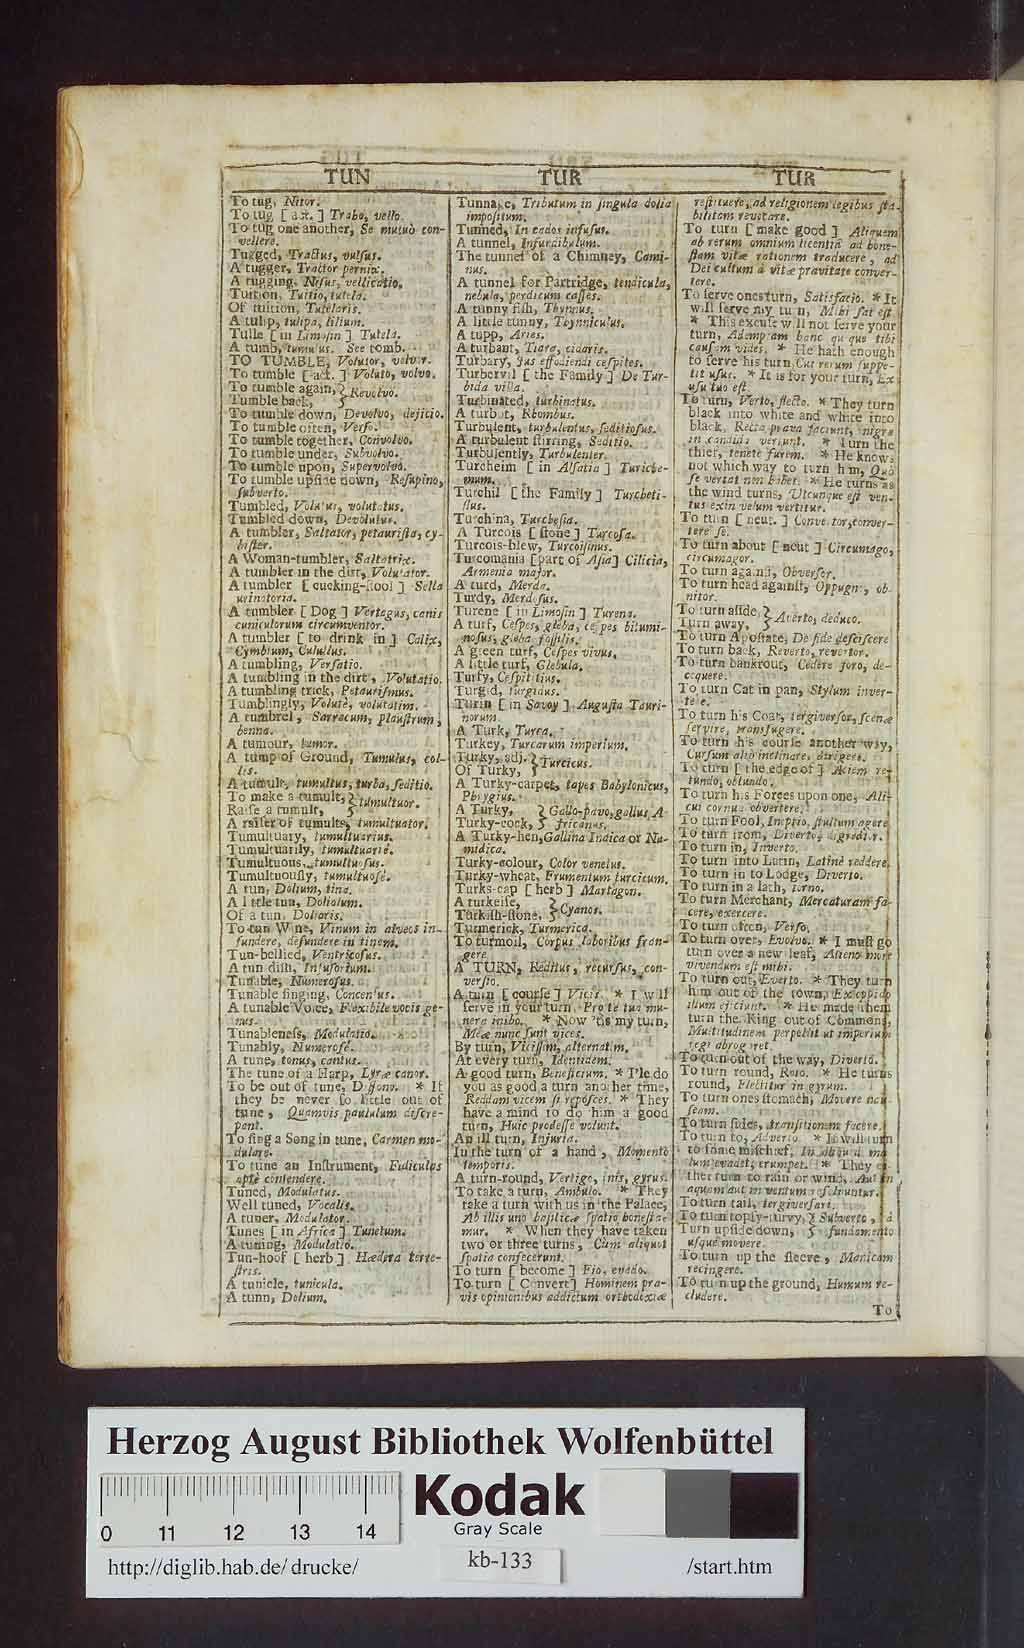 TUN
TUR
TUR
To tug, Nitor.
To tug [act.] Trabo, vello.
To tug one another, Se mutuò con-
vellere.
Tugged, Tractus, vulsus.
A tugger, Tractor pernix.
A tugging, Nisus, vellicatio.
Tuition, Tuitio, tutela.
Of tuition, Tutelaris.
A tulip, tulipa, lilium.
Tulle [in Limosin] Tutela.
A tumb, tumulus. See tomb.
TO TUMBLE, Volutor, volvor.
To tumble [act.] Voluto, volvo.
To tumble again, } Revolvo.
Tumble back,
To tumble down, Devolvo, dejicio.
To tumble often, Verso.
To tumble together, Convolvo.
To tumble under, Subvolvo.
To tumble upon, Supervolvo.
To tumble upside down, Resupino,
subverto.
Tumbled, Volutus, volutatus.
Tumbled down, Devolutus.
A tumbler, Saltator, petaurista, cy-
bister.
A Woman-tumbler, Saltatrix.
A tumbler in the dirt, Volutator.
A tumbler [cucking-stool] Sella
urinatoria.
A tumbler [Dog] Vertagus, canis
cuniculorum circumventor.
A tumbler [to drink in] Calix,
Cymbium, Culullus.
A tumbling, Versatio.
A tumbling in the dirt, Volutatio.
A tumbling trick, Petaurismus.
Tumblingly, Volutè, volutatim.
A tumbrel, Sarracum, plaustrum,
benna.
A tumour, tumor.
A tump of Ground, Tumulus, col-
lis.
A tumult, tumultus, turba, seditio.
To make a tumult, } tumultuor.
Raise a tumult,
A raiser of tumults, tumultuator.
Tumultuary, tumultuarius.
Tumultuarily, tumultuariè.
Tumultuous, tumultuosus.
Tumultuously, tumultuosé.
A tun, Dolium, tina.
A little tun, Doliolum.
Of a tun, Doliaris.
To tun Wine, Vinum in alveos in-
fundere, defundere in tinam.
Tun-bellied, Ventricosus.
A tun dish, Infusorium.
Tunable, Numerosus.
Tunable singing, Concentus.
A tunable Voice, Flexibile vocis ge-
nus.
Tunableness, Modulatio.
Tunably, Numerosé.
A tune, tonus, cantus.
The tune of a Harp, Lyræ canor.
To be out of tune, Dissono. * If
they be never so little out of
tune, Quamvis paululum discre-
pant.
To sing a Song in tune, Carmen mo-
dulare.
To tune an Instrument, Fidiculas
aptè contendere.
Tuned, Modulatus.
Well tuned, Vocalis.
A tuner, Modulator.
Tunes [in Africa] Tunetum.
A tuning, Modulatio.
Tun-hoof [herb] Hædera terre-
stris.
A tunicle, tunicula.
A tunn, Dolium.
Tunnage, Tributum in singula dolia
impositum.
Tunned, In cados infusus.
A tunnel, Infundibulum.
The tunnel of a Chimney, Cami-
nus.
A tunnel for Partridge, tendicula,
nebula, perdicum casses.
A tunny fish, Thynnus.
A little tunny, Thynniculus.
A tupp, Aries.
A turbant, Tiara, cidaris.
Turbary, Jus effodiendi cespites.
Turbervil [the Family] De Tur-
bida villa.
Turbinated, turbinatus.
A turbot, Rhombus.
Turbulent, turbulentus, seditiosus.
A turbulent stirring, Seditio.
Turbulently, Turbulenter.
Turcheim [in Alsatia] Turiche-
mum.
Turchil [the Family] Turcheti-
llus.
Turchina, Turchesia.
A Turcois [stone] Turcosa.
Turcois-blew, Turcoisinus.
Turcomania [part of Asia] Cilicia,
Armenia major.
A turd, Merda.
Turdy, Merdosus.
Turene [in Limosin] Turena.
A turf, Cespes, gleba, cespes bitumi-
nosus, gleba fossilis.
A green turf, Cespes vivus.
A little turf, Glebula.
Turfy, Cespititius.
Turgid, turgidus.
Turin [in Savoy] Augusta Tauri-
norum.
A Turk, Turca.
Turkey, Turcarum imperium.
Turky, adj. } Turcicus.
Of Turky,
A Turky-carpet, tapes Babylonicus,
Phrygius.
A Turky, } Gallo-pavo, gallus A-
Turky-cock, fricanus.
A Turky-hen, Gallina Indica or Nu-
midica.
Turky-colour, Color venetus.
Turky-wheat, Frumentum turcicum.
Turks-cap [herb] Martagon.
A turkeise, } Cyanos.
Turkish-stone,
Turmerick, Turmerica.
To turmoil, Corpus laboribus fran-
gere.
A TURN, Reditus, recursus, con-
versio.
A turn [course] Vicis. * I will
serve in your turn, Pro te tuo mu-
nere inibo. * Now 'tis my turn,
Meæ nunc sunt vices.
By turn, Vicissim, alternatim.
At every turn, Identidem.
A good turn, Beneficium. * I'le do
you as good a turn another time,
Reddam vicem si reposces. * They
have a mind to do him a good
turn, Huic prodesse volunt.
An ill turn, Injuria.
In the turn of a hand, Momento
temporis.
A turn-round, Vertigo, inis, gyrus.
To take a turn, Ambulo. * They
take a turn with us in the Palace,
Ab illis uno basilicæ spatio honesta-
mur. * When they have taken
two or three turns, Cum aliquot
spatia confecerunt.
To turn [become] Fio, evado.
To turn [Convert] Hominem pra-
vis opinionibus addictum orthodoxiæ
restituere, ad religionem legibus sta-
bilitam revocare.
To turn [make good] Aliquem
ab rerum omnium licentiâ ad hone-
stam vitæ rationem traducere, ad
Dei cultum à vitæ pravitate conver-
tere.
To serve ones turn, Satisfacio. * It
will serve my turn, Mihi sat est.
* This excuse will not serve your
turn, tibi
causam vides. * He hath enough
to serve his turn, Cui rerum suppe-
tit usus. * It is for your turn, Ex
usu tuo est.
To turn, Verto, flecto. * They turn
black into white and white into
black, Recta prava faciunt, nigra
in candida vertunt. * Turn the
thief, tenete furem. * He knows
not which way to turn him, Quò
se vertat non habet. * He turns as
the wind turns, Utcunque est ven-
tus exin velum vertitur.
To turn [neut.] Convertor, conver-
tere se.
To turn about [neut] Circumago,
circumagor.
To turn against, Obversor.
To turn head against, Oppugno, ob-
nitor.
To turn aside, } Averto, deduco.
Turn away,
To turn Apostate, De fide desciscere
To turn back, Reverto, revertor.
To turn bankrout, Cedere foro, de-
coquere.
To turn Cat in pan, Stylum inver-
tere.
To turn his Coat, tergiversor, scenæ
servire, transfugere.
To turn his course another way,
Cursum aliò inclinare, dirigere.
To turn [the edge of] Aciem re-
tundo, obtundo.
To turn his Forces upon one, Ali-
cui cornua obvertere.
To turn Fool, Ineptio, stultum agere
To turn from, Diverto, digredior.
To turn in, Inverto.
To turn into Latin, Latinè reddere.
To turn in to Lodge, Diverto.
To turn in a lath, torno.
To turn Merchant, Mercaturam fa-
cere, exercere.
To turn often, Verso.
To turn over, Evolvo. * I must go
turn over a new leaf, Alieno more
vivendum est mihi.
To turn out, Everto. * They turn
him out of the town, Ex oppido
illum ejiciunt. * He made them
turn the King out of Commons,
Multitudinem perpulit ut imperium
regi abrogaret.
To turn out of the way, Diverto.
To turn round, Roto. * He turns
round, Flectitur in gyrum.
To turn ones stomach, Movere nau-
seam.
To turn sides, transitionem facere.
To turn to, Adverto. * It will turn
to some mischief, In aliquod ma-
lum evadet, erumpet. * They ei-
ther turn to rain or wind, Aut in
aquam aut in ventum resolvuntur.
To turn tail, tergiversari.
To turn topsy-turvy, } Subverto, à
Turn upside down, fundamento
usque movere.
To turn up the sleeve, Manicam
recingere.
To turn up the ground, Humum re-
cludere.
To
Herzog August Bibliothek Wolfenbüttel
Kodak
Gray Scale
0 11 12 13 14
kb-133
http://diglib.hab.de/drucke/
/start.htm